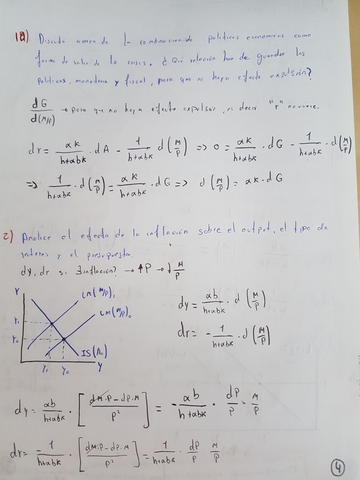 1) Discuta acerca de la combinación de políticas económicas como
forma de salir de la crisis. ¿Qué relación han de guardar las
políticas, monetaria y fiscal, para que no haya efecto expulsión?
dG/d(M/P) → para que no haya efecto expulsión, es decir "r" no mueve.
dr = αk/(h+αbk) · dA - 1/(h+αbk) · d(M/P) => 0 = αk/(h+αbk) · dG - 1/(h+αbk) · d(M/P)
=> 1/(h+αbk) · d(M/P) = αk/(h+αbk) · dG => d(M/P) = αk · dG
2) Analice el efecto de la inflación sobre el output, el tipo de
interés y el presupuesto
dy, dr si ∃ inflación? → ↑P → ↓M/P
r
LM(M/P)₁
LM(M/P)₀
r₁
r₀
IS(A₀)
y₁ y₀ y
dy = αb/(h+αbk) · d(M/P)
dr = - 1/(h+αbk) · d(M/P)
dy = αb/(h+αbk) · [(dM·P - dP·M)/P²] = - αb/(h+αbk) · dP/P · M/P
dr = - 1/(h+αbk) · [(dM·P - dP·M)/P²] = 1/(h+αbk) · dP/P · M/P
4